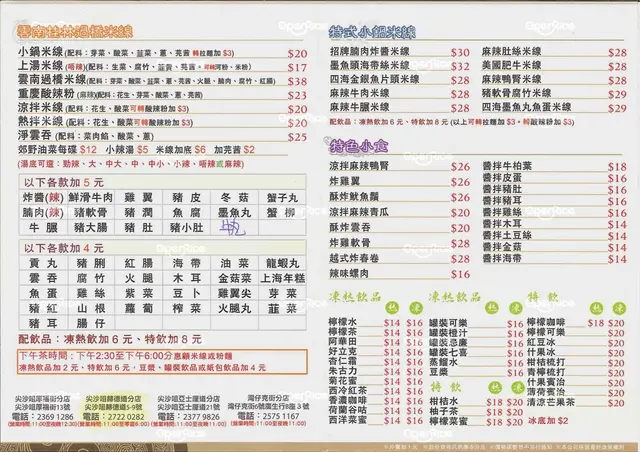 雲南桂林過橋米線
小鍋米線(配料：芽菜、酸菜、韮菜、蔥、芫茜 轉拉麵加 $3) $20
上湯米線(唔辣)(配料：生菜、腐竹、韮黃、芫茜 可轉河粉、米粉) $17
雲南過橋米線(配料：芽菜、酸菜、韮菜、蔥、芫茜、火腿、腩肉、腐竹、紅腸) $38
重慶酸辣粉(麻辣)(配料：花生、芽菜、酸菜、蔥、芫茜) $23
涼拌米線(配料：花生、酸菜 可轉酸辣粉加 $3) $20
熱拌米線(配料：花生、酸菜 可轉酸辣粉加 $3) $20
淨雲吞(配料：菜肉餡、酸菜、蔥) $25
郊野油菜每碟 $12 小辣湯 $5 米線加底 $6 加芫茜 $2
(湯底可選：勁辣、大、中大、中、中小、小辣、唔辣或麻辣)
以下各款加 5 元
炸醬(辣) 鮮滑牛肉 雞翼 豬皮 冬菇 蟹子丸
腩肉(辣) 豬軟骨 豬潤 魚腐 墨魚丸 蟹柳
牛腩 豬大腸 豬肚 豬小肚
以下各款加 4 元
貢丸 豬脷 紅腸 海帶 油菜 龍蝦丸
雲吞 腐竹 火腿 木耳 金菇菜 上海年糕
魚蛋 雞絲 紫菜 豆卜 雞翼尖 芽菜
豬紅 山根 蘿蔔 榨菜 火腿丸 韮菜
豬耳 腸仔
配飲品：凍熱飲加 6 元、特飲加 8 元
下午茶時間：下午2:30至下午6:00分惠顧米線或粉麵
凍熱飲品加 2 元、特飲加 6 元，豆漿、罐裝飲品或紙包飲品加 4 元
尖沙咀厚福街分店
尖沙咀厚福街13號
電話：2369 1286
尖沙咀赫德道分店
尖沙咀赫德道5-9號
電話：2722 0282
尖沙咀亞士厘道分店
尖沙咀亞士厘道21號
電話：2377 9826
灣仔克街分店
灣仔克街6號廣生行8座 3 號
電話：2575 1167
特式小鍋米線
招牌腩肉炸醬米線 $30
墨魚頭海帶絲米線 $32
四海金銀魚片頭米線 $28
麻辣牛肉米線 $28
麻辣牛腩米線 $28
麻辣肚絲米線 $28
美國肥牛米線 $28
麻辣鴨腎米線 $28
豬軟骨腐竹米線 $29
四海墨魚丸魚蛋米線 $29
配飲品：凍熱飲加 6 元、特飲加 8 元 (以上可轉拉麵加 $3，轉酸辣粉加 $3)
特色小食
涼拌麻辣鴨腎 $26
炸雞翼 $26
酥炸魷魚鬚 $26
涼拌麻辣青瓜 $20
酥炸雲吞 $20
炸雞軟骨 $28
越式炸春卷 $28
辣味螺肉 $16
醬拌牛柏葉 $18
醬拌皮蛋 $16
醬拌豬肚 $16
醬拌豬耳 $16
醬拌雞絲 $16
醬拌木耳 $14
醬拌土豆絲 $14
醬拌金菇 $14
醬拌海帶 $14
凍熱飲品 熱 凍
檸檬水 $14 $16
檸檬茶 $14 $16
阿華田 $14 $16
好立克 $14 $16
杏仁霜 $14 $16
朱古力 $14 $16
菊花蜜 $14 $16
西冷紅茶 $14 $16
香濃咖啡 $14 $16
荷蘭谷咕 $14 $16
西洋菜蜜 $14 $16
凍熱飲品 熱 凍
罐裝可樂 $16
罐裝橙汁 $16
罐裝忌廉 $16
罐裝七喜 $16
蒸餾水 $16
豆漿 $16
特飲 熱 凍
柑桔水 $18 $20
柚子茶 $18 $20
檸檬菜蜜 $18 $20
特飲 熱 凍
檸檬咖啡 $18 $20
檸檬可樂 $20
紅豆冰 $20
什果冰 $20
柑桔梳打 $20
青檸梳打 $20
什果賓治 $20
薄荷賓治 $20
清涼芒果茶 $20
冰底加 $2